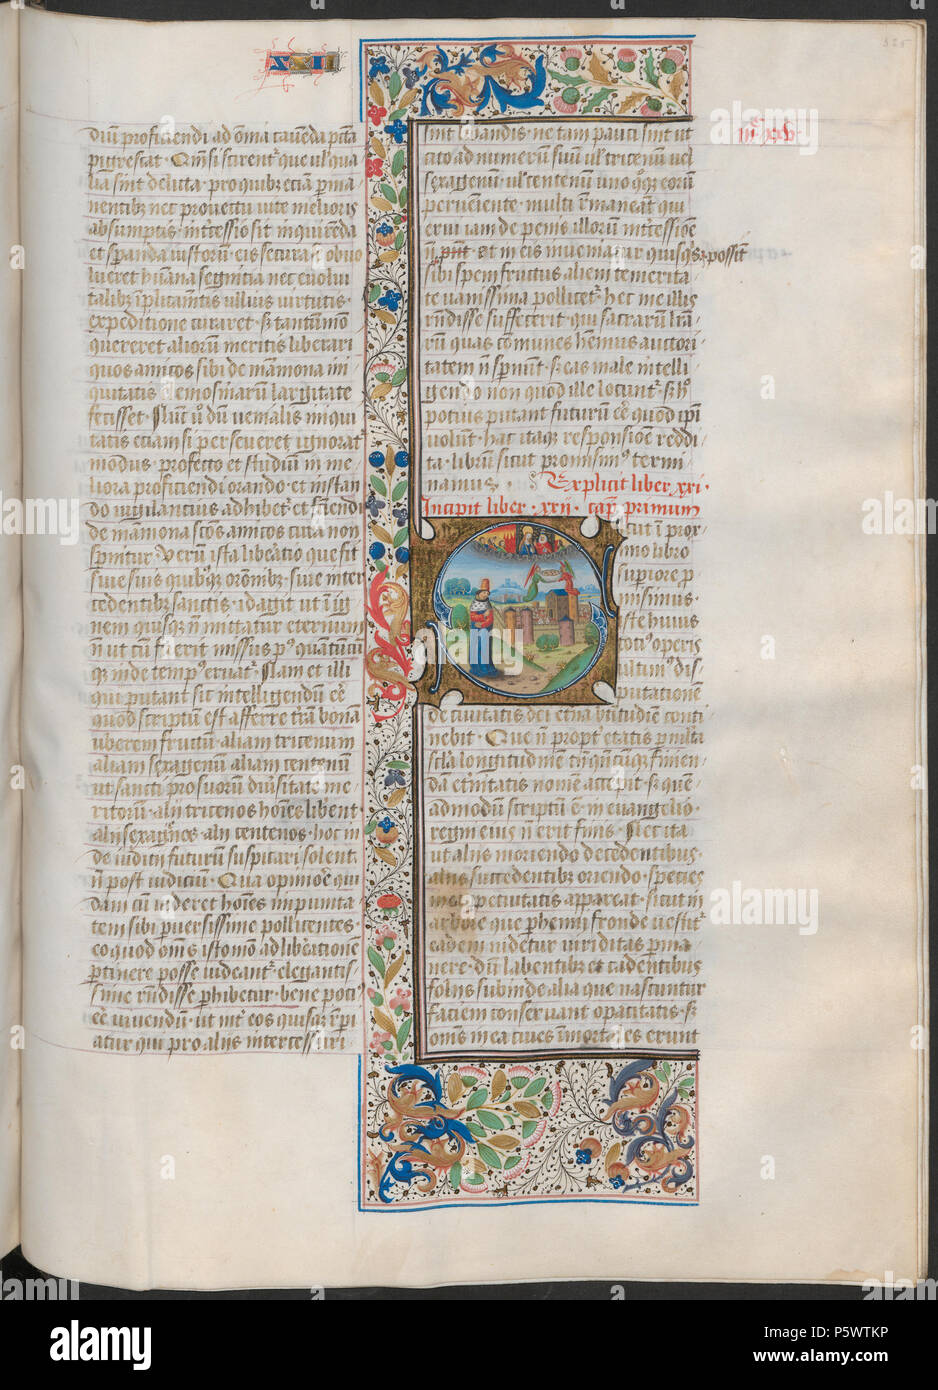 325
XXI
diu proficiendi ad oīa cauenda pctā
pigrescat · Om̄si scirent̄ que ul' qua
lia sint delicta · pro quibꝫ eciam pma
nentibꝫ nec prouectu uite melioris
absumptis · intcessio sit inquirēda
et speranda iustorum · eis secura se obuo
lueret humana segnicia nec euolui
talibꝫ īplicamētis ullius uirtutis
expeditione curaret · sꝫ tantūmō
quereret aliorū meritis liberari
quos amicos sibi de mamona ini
quitatis elemosinarū largitate
fecisset · Nūc u° dū uenialis iniqui
tatis etiam si perseueret ignorat̄
modus · profecto et studiū in me
liora proficiendi orando · et instan
do uigilantius adhibet̄ et faciendi
de mamona scōs amicos cura non
spnitur · Verū ista libatio que fit
siue suis quibꝫ orōnibꝫ · siue inter
cedentibꝫ sanctis · id agit ut ī ig
nem quisqꝫ n̄ mittatur eternum
n̄ ut cū fuerit missus p° quātūcūꝫ
qꝫ inde temp° eruat̄ · Nam et illi
qui putant sic intelligendū eē
quod scriptū est afferre t̄rā bonā
uberem fructū · aliam tricenum
aliam sexagenū aliam centenū
ut sancti pro suorū diu̅sitate me
ritorū · alij tricenos hōies libent
alij sexagenos alij centenos · hoc in
die iudicij futurū suspicari solent
n̄ post iudiciū · Qua opinioē qui
dam cū uideret hoīes impunita
tem sibi puersissime pollicentes
eo quod om̄s isto modo ad libationē
ptinere posse uideant̄ · elegantis
sime rn̄disse phibetur · bene poci°
eē uiuendū · ut int̄ eos quisqꝫ repi
atur qui pro alijs intercessuri
sint libandis · ne tam pauci sint ut
cito ad numerū suū ul' tricenū uel
sexagenū · ul' centenū uno quoqꝫ eorū
perueniente · multi remaneāt qui
erui iam de penis illorū intcessiōe
n̄ pnt · et in eis inueniatur quisqꝫ possit
sibi spem fructus alieni temerita
te uanissima pollicet̄ · hec me illis
rn̄disse suffecerit · qui sacrarū lrā
rū quas communes hēmus auctori
tatem n̄ spnūt · sꝫ eas male intelli
gendo non quod ille locunt̄ · sꝫ h°
potius putant futurū eē quod ipī
uolunt · hac itaqꝫ responsiōe reddi
ta · librū sicut promisim° termi
namus · Explicit liber xxi ·
Incipit liber · xxij · cap̄ primum
Sicut ī prox
imo libro
superiore p
misimus ·
iste huius
toti° operis
ultim° dis
putationē
de ciuitatis dei etna btitudīe conti
nebit · Que n̄ propt̄ etatis p multa
scl̄a longitudinē t̄n quūcūqꝫ finien
dā et̄nitatis nomē accepit · sꝫ que
admodū scriptū ē in euangelio ·
regni eius n̄ erit finis · Nec ita
ut aliis moriendo decedentibus
aliis succedentibꝫ oriendo · species
in ea ppetuitatis appareat · sicut in
arbore que phenni fronde uestit̄
eadem uidetur uiriditas pma
nere · dū labentibꝫ et cadentibus
foliis subinde alia que nascuntur
faciem conseruant opacitatis · sꝫ
om̄s in ea ciues īmortales erunt
alamy
a
alamy
Image ID: P5WTKP
www.alamy.com